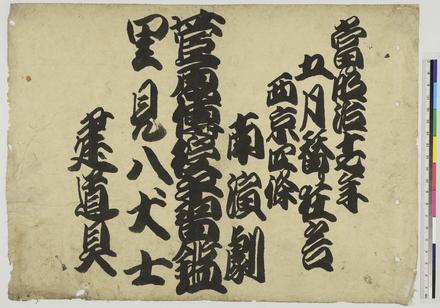 當明治年
五月替狂言
西京四條
南演劇
菅原傳授手習鑑
里見八犬士
建道具